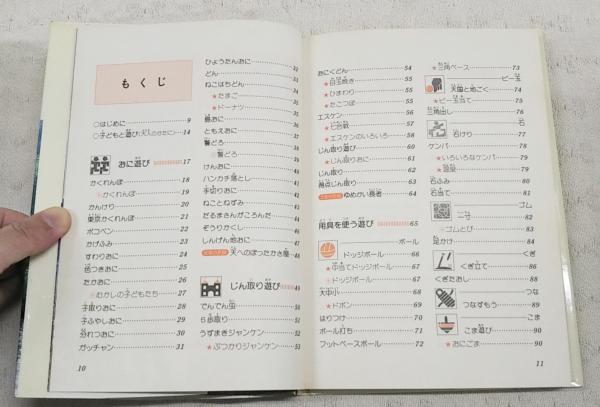 もくじ
○はじめに 9
○子どもと遊び(大人のかたに) 14
おに遊び 17
かくれんぼ 18
かくれんぼ 19
かんけり 20
東京かくれんぼ 21
ポコペン 22
かげふみ 23
すわりおに 24
色つきおに 25
たかおに 26
むかしの子どもたち 27
子取りおに 28
子ふやしおに 30
ガッチャン 31
10
ひょうたんおに 32
どん
ねこばちどん
★たまご
★ドーナツ
島おに
ともえおに
警どろ
警どろ
けんおに
ハンカチ落とし
手切りおに
ねことねずみ
だるまさんがころんだ
ぞうりかくし
しんげん地おに
天へのぼったかき屋 48
じん取り遊び 49
でんでん虫 50
6歩取り 51
うずまきジャンケン 52
★ぶつかりジャンケン 53
おにくどん 54
★目玉焼き 55
★ひまわり 55
★たこつぼ 55
エスケン 56
★エスケンのいろいろ 58
じん取り遊び 60
★じん取りおに 61
じん取り 62
ゆめかい長者 64
用具を使う遊び 65
ボール
ドッジボール 66
★中当てドッジボール 67
ドッジボール 67
大中小 68
★ドボン 69
はりつけ 70
ボール打ち 71
フットベースボール 72
★三角ベース 73
ビー玉
天国と地ごく 74
★ビー玉当て 75
三角出し 76
石
石けり 77
ケンパ 78
★いろいろなケンパ 79
石ふみ 80
石当て 81
ゴム
ゴムとび 83
足かけ 84
くぎ
くぎ立て 86
くぎたおし 87
つな
つなずもう 89
こま
こま遊び 90
★おにごま 90
11